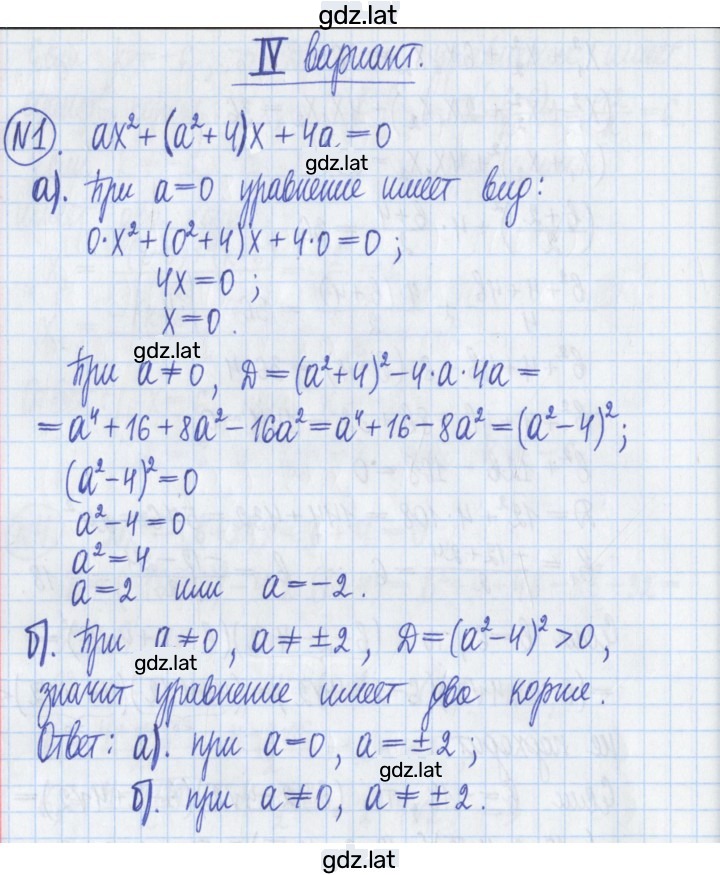 gdz.lat
IV вариант.
N1. ax²+(a²+4)x+4a=0
gdz.lat
а). При a=0 уравнение имеет вид:
0·x²+(0²+4)x+4·0=0;
4x=0;
x=0.
gdz.lat
При a≠0, Д=(a²+4)²-4·a·4a=
=a⁴+16+8a²-16a²=a⁴+16-8a²=(a²-4)²;
(a²-4)²=0
a²-4=0
a²=4
a=2 или a=-2.
б). При a≠0, a≠±2, Д=(a²-4)²>0,
gdz.lat
значит уравнение имеет два корня.
Ответ: а). при a=0, a=±2;
gdz.lat
б). при a≠0, a≠±2.
gdz.lat